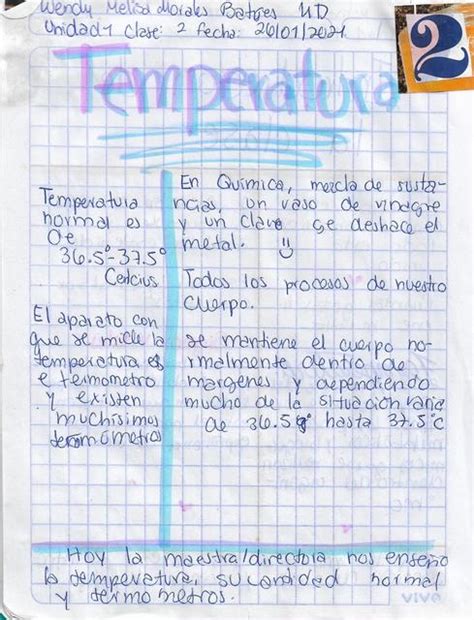 Wendy Melisa Morales Batres UD
Unidad 1 Clase: 2 fecha: 26/01/2021
2
Temperatura
Temperatura
normal es
De
36.5°-37.5°
Celcius
El aparato con
que se mide la
temperatura es
e termometro
y existen
muchísimos
termómetros
En Química, mezcla de sustan-
cias, un vaso de vinagre
y un clavo se deshace el
metal.
Todos los procesos de nuestro
cuerpo.
se mantiene el cuerpo no-
rmalmente dentro de
margenes y dependiendo
mucho de la situación varia
de 36.5° hasta 37.5°c
Hoy la maestra/directora nos enseño
la temperatura, su cantidad normal
y termometros.
vivo